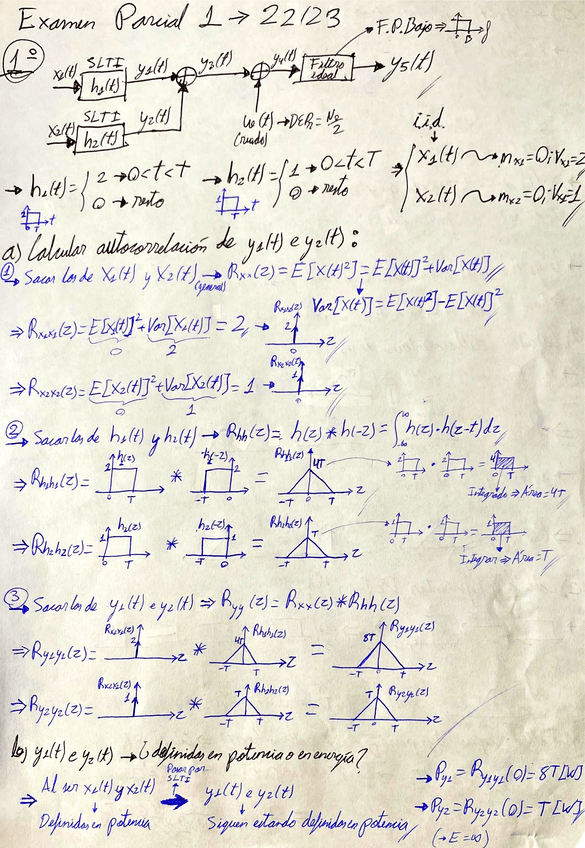 Examen Parcial 1 → 22/23
1º
F.P. Bajo ⇒
B f
SLTI y1(t) y3(t) y4(t) Filtro ideal y5(t)
x1(t) h1(t)
SLTI y2(t)
x2(t) h2(t)
w(t) → DEP = N0/2
(ruido)
i.i.d.
→ h1(t) = { 2 → 0<t<T
0 → resto
→ h2(t) = { 1 → 0<t<T
0 → resto
⇒ { x1(t) ⇝ mx1=0; Vx1=2
x2(t) ⇝ mx2=0; Vx2=1
a) Calcular autocorrelación de y1(t) e y2(t):
① Sacar las de X1(t) y X2(t) → Rxx(z) = E[X(t)²] = E[X(t)]² + Var[X(t)]
(general)
Var[X(t)] = E[X(t)²] - E[X(t)]²
⇒ Rx1x1(z) = E[X1(t)]² + Var[X1(t)] = 2 → Rx1x1(z) 2 z
0 2
⇒ Rx2x2(z) = E[X2(t)]² + Var[X2(t)] = 1 → Rx2x2(z) 1 z
0 1
② Sacar las de h1(t) y h2(t) → Rhh(z) = h(z) * h(-z) = ∫ h(z)·h(z-t)dz
⇒ Rh1h1(z) = h1(z) 2 T z * h1(-z) 2 -T 0 z = Rh1h1(z) 4T -T T z
Integrado ⇒ Área = 4T
⇒ Rh2h2(z) = h2(z) 1 T z * h2(-z) 1 -T 0 z = Rh2h2(z) T -T T z
Integrar ⇒ Área = T
③ Sacar las de y1(t) e y2(t) ⇒ Ryy(z) = Rxx(z) * Rhh(z)
⇒ Ry1y1(z) = Rx1x1(z) 2 z * Rh1h1(z) 4T -T T z = Ry1y1(z) 8T -T 0 T z
⇒ Ry2y2(z) = Rx2x2(z) 1 z * Rh2h2(z) T -T T z = Ry2y2(z) T -T 0 T z
b) y1(t) e y2(t) → ¿definidas en potencia o en energía?
⇒ Al ser x1(t) y x2(t) Pasar por SLTI y1(t) e y2(t)
Definidas en potencia Siguen estando definidas en potencia
→ Py1 = Ry1y1(0) = 8T [W]
→ Py2 = Ry2y2(0) = T [W]
(→ E = ∞)